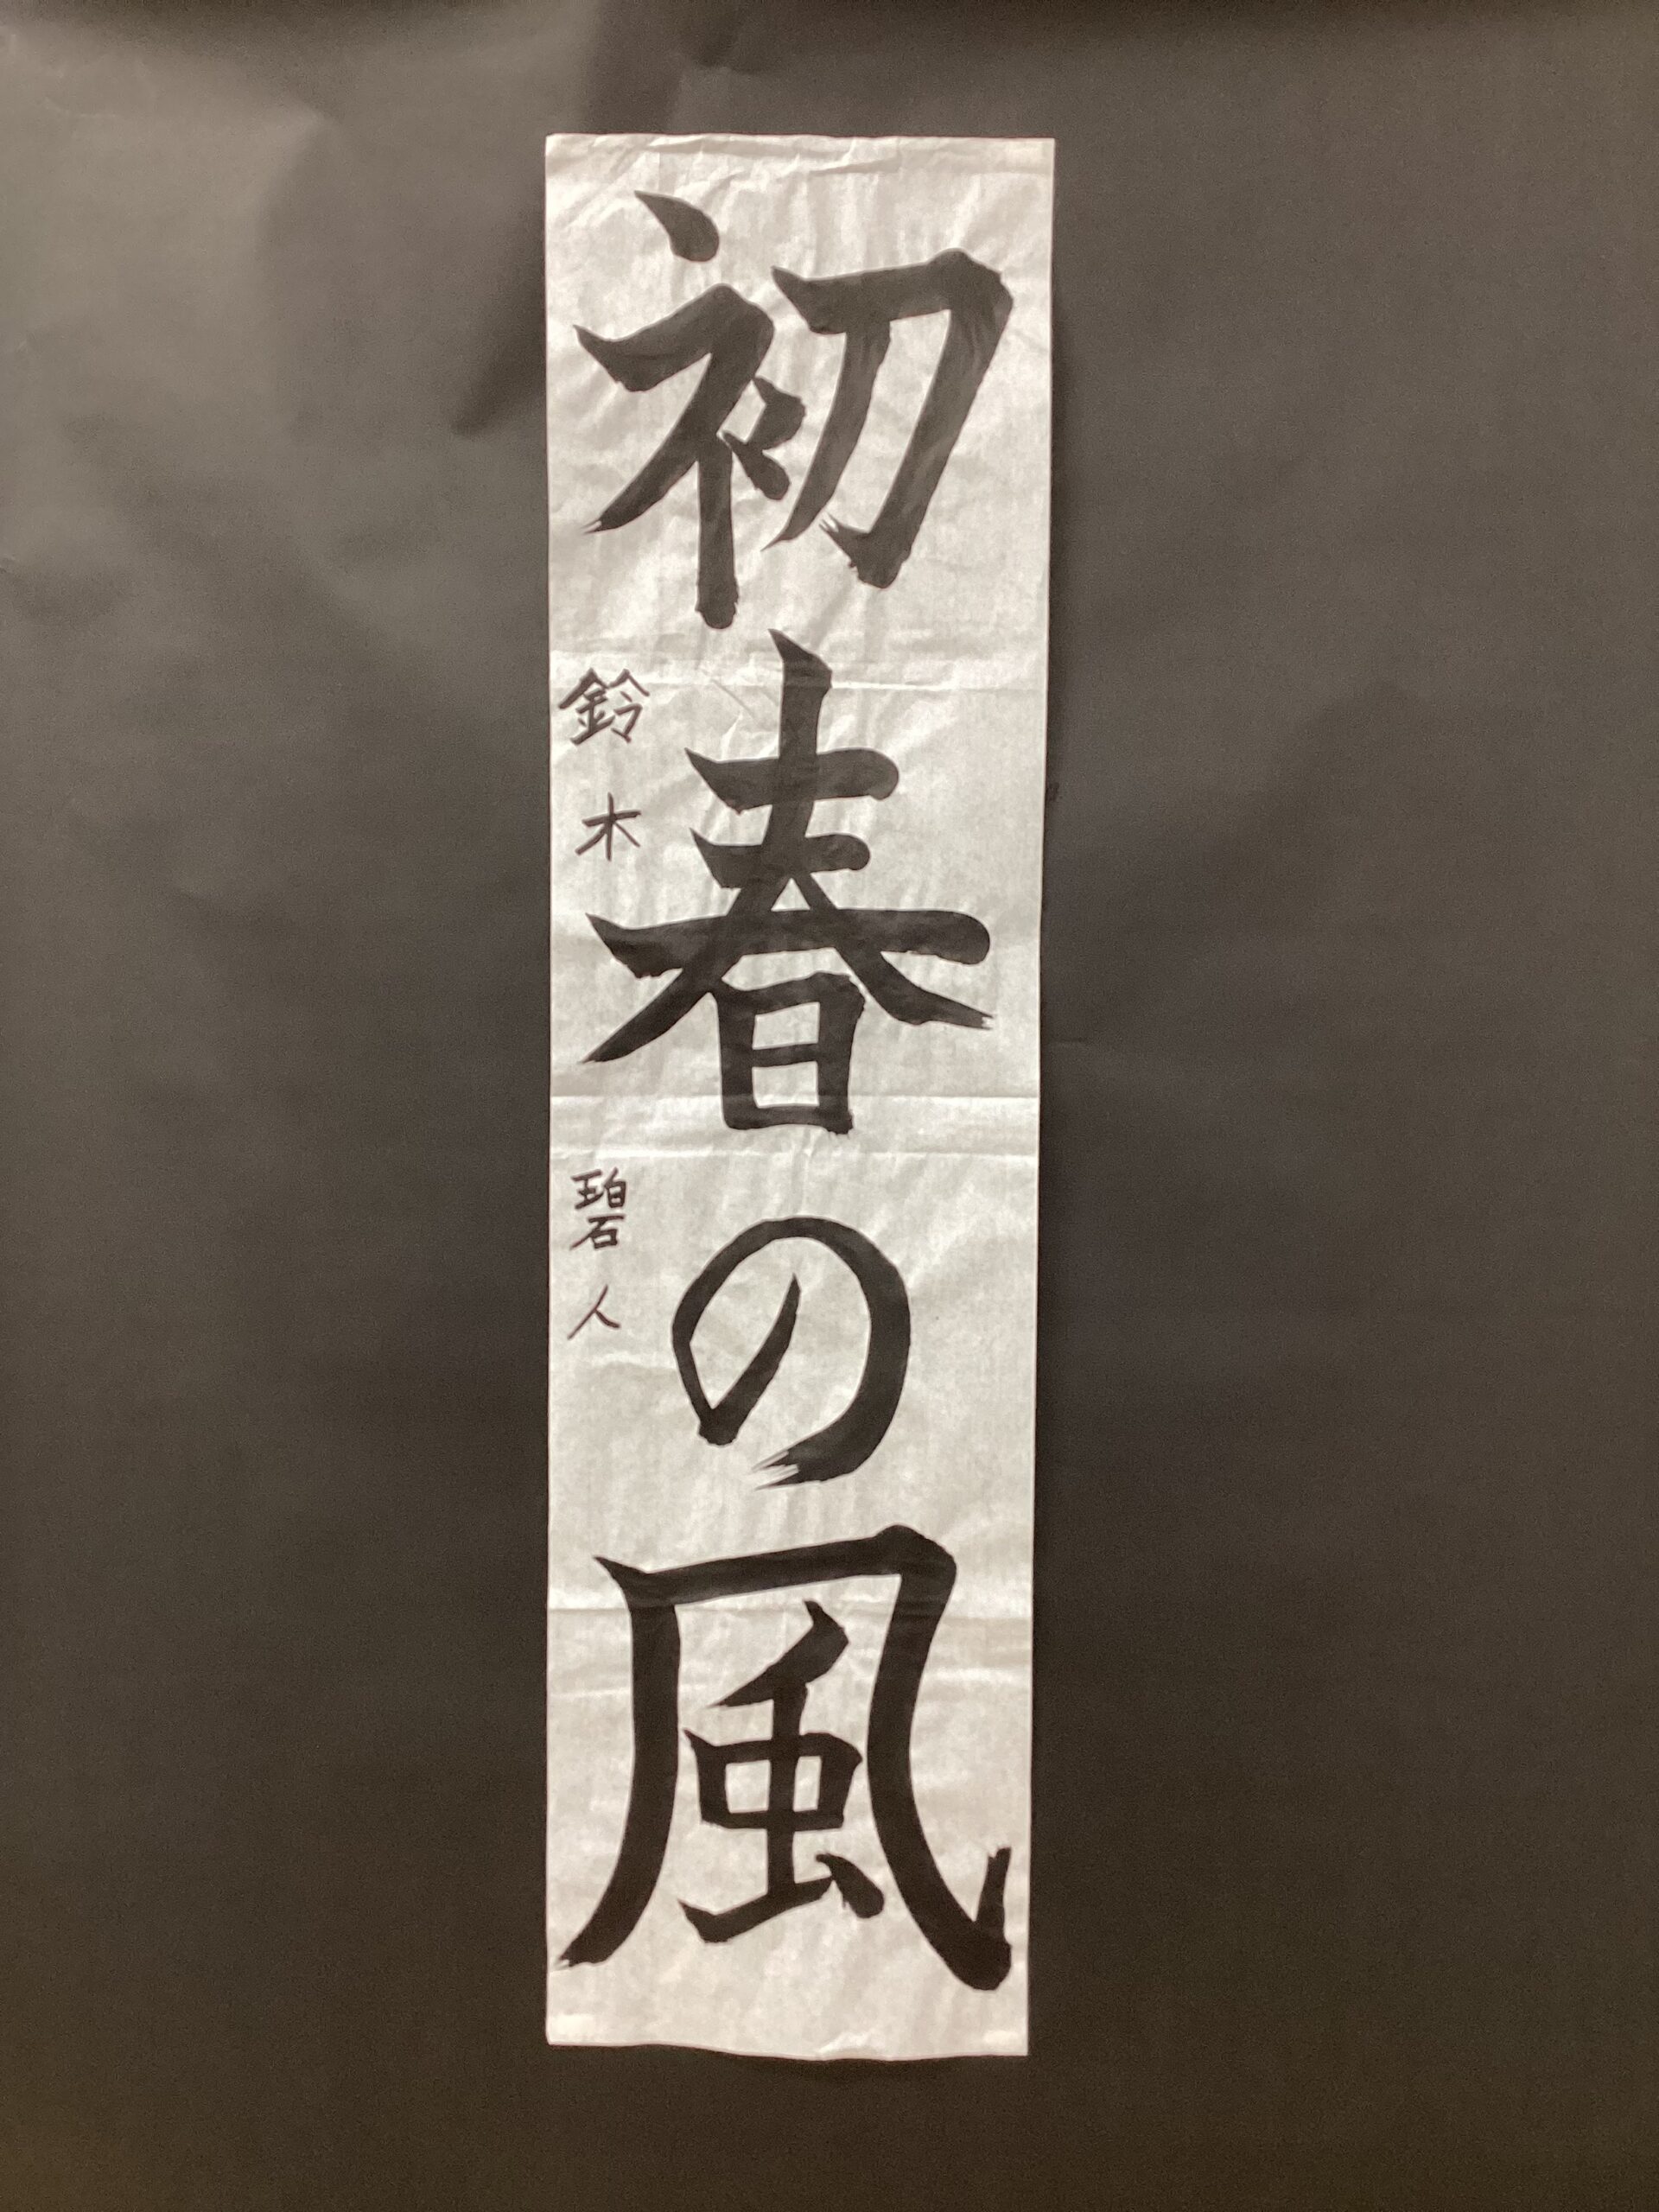 初春の風
鈴木 碧人